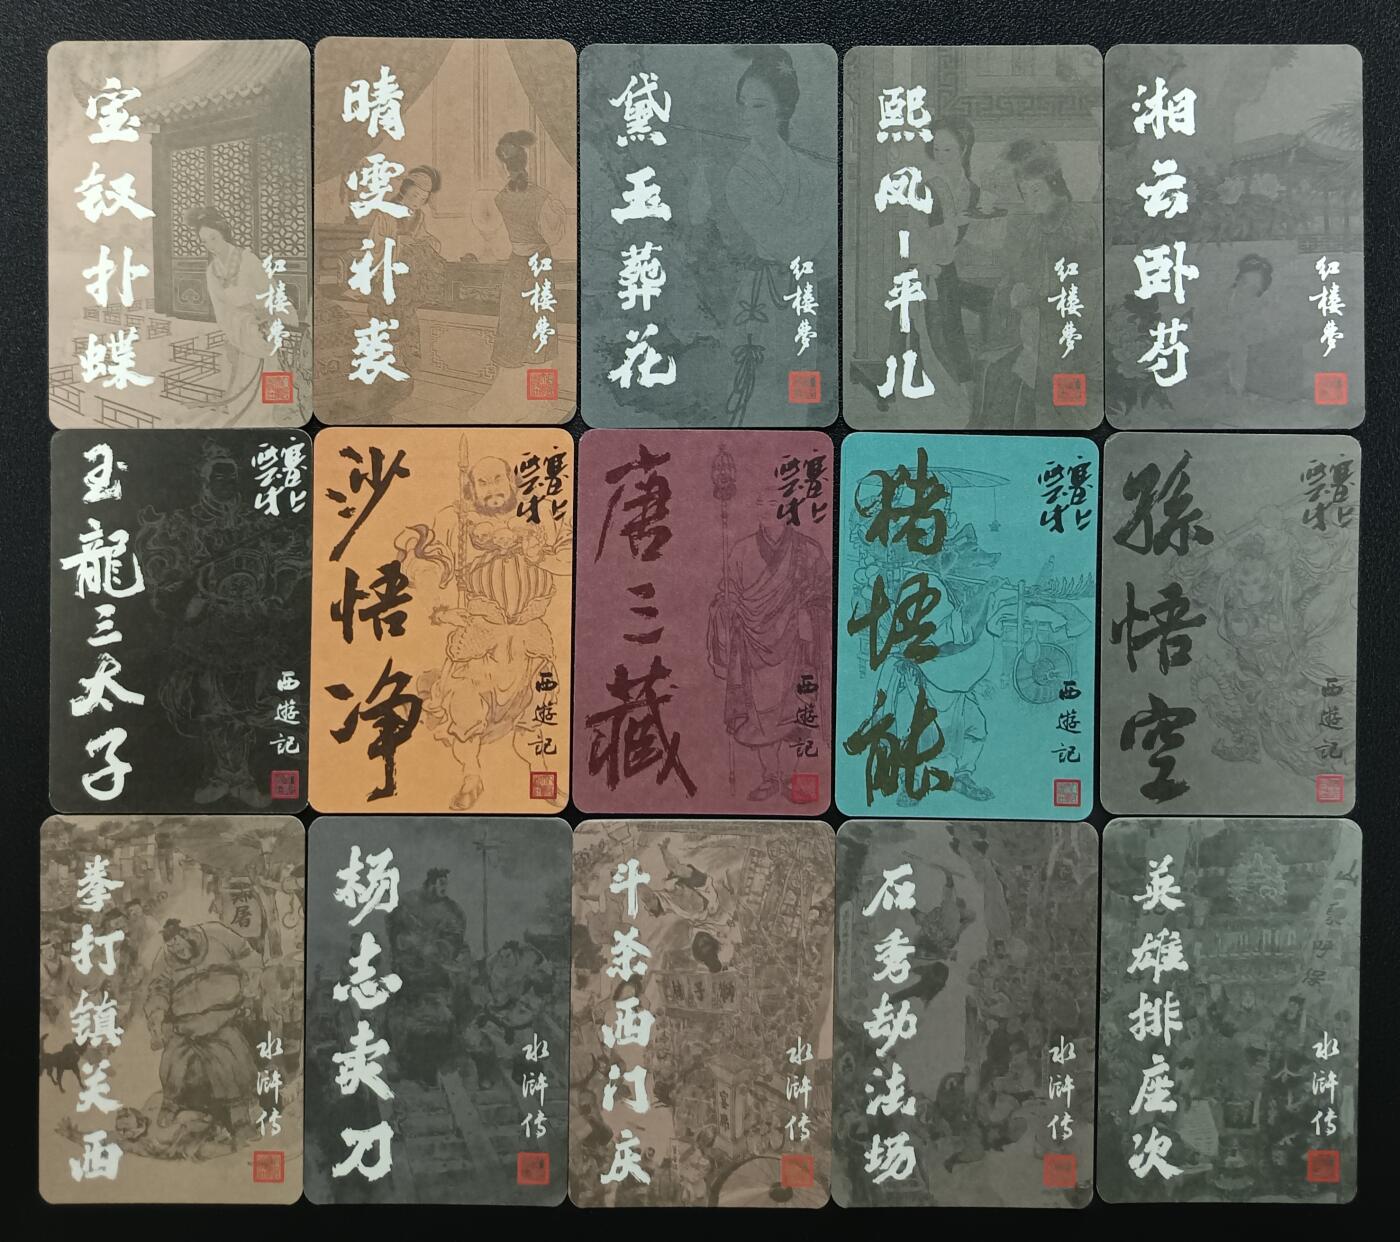 宝钗扑蝶
红楼夢
晴雯补裘
红楼夢
黛玉葬花
红楼夢
熙凤-平儿
红楼夢
湘云卧芍
红楼夢
玉龍三太子
西遊記
沙悟净
西遊記
唐三藏
西遊記
猪悟能
西遊記
孫悟空
西遊記
拳打镇关西
郑屠
水浒传
杨志卖刀
水浒传
斗杀西门庆
水浒传
石秀劫法场
水浒传
英雄排座次
水浒传